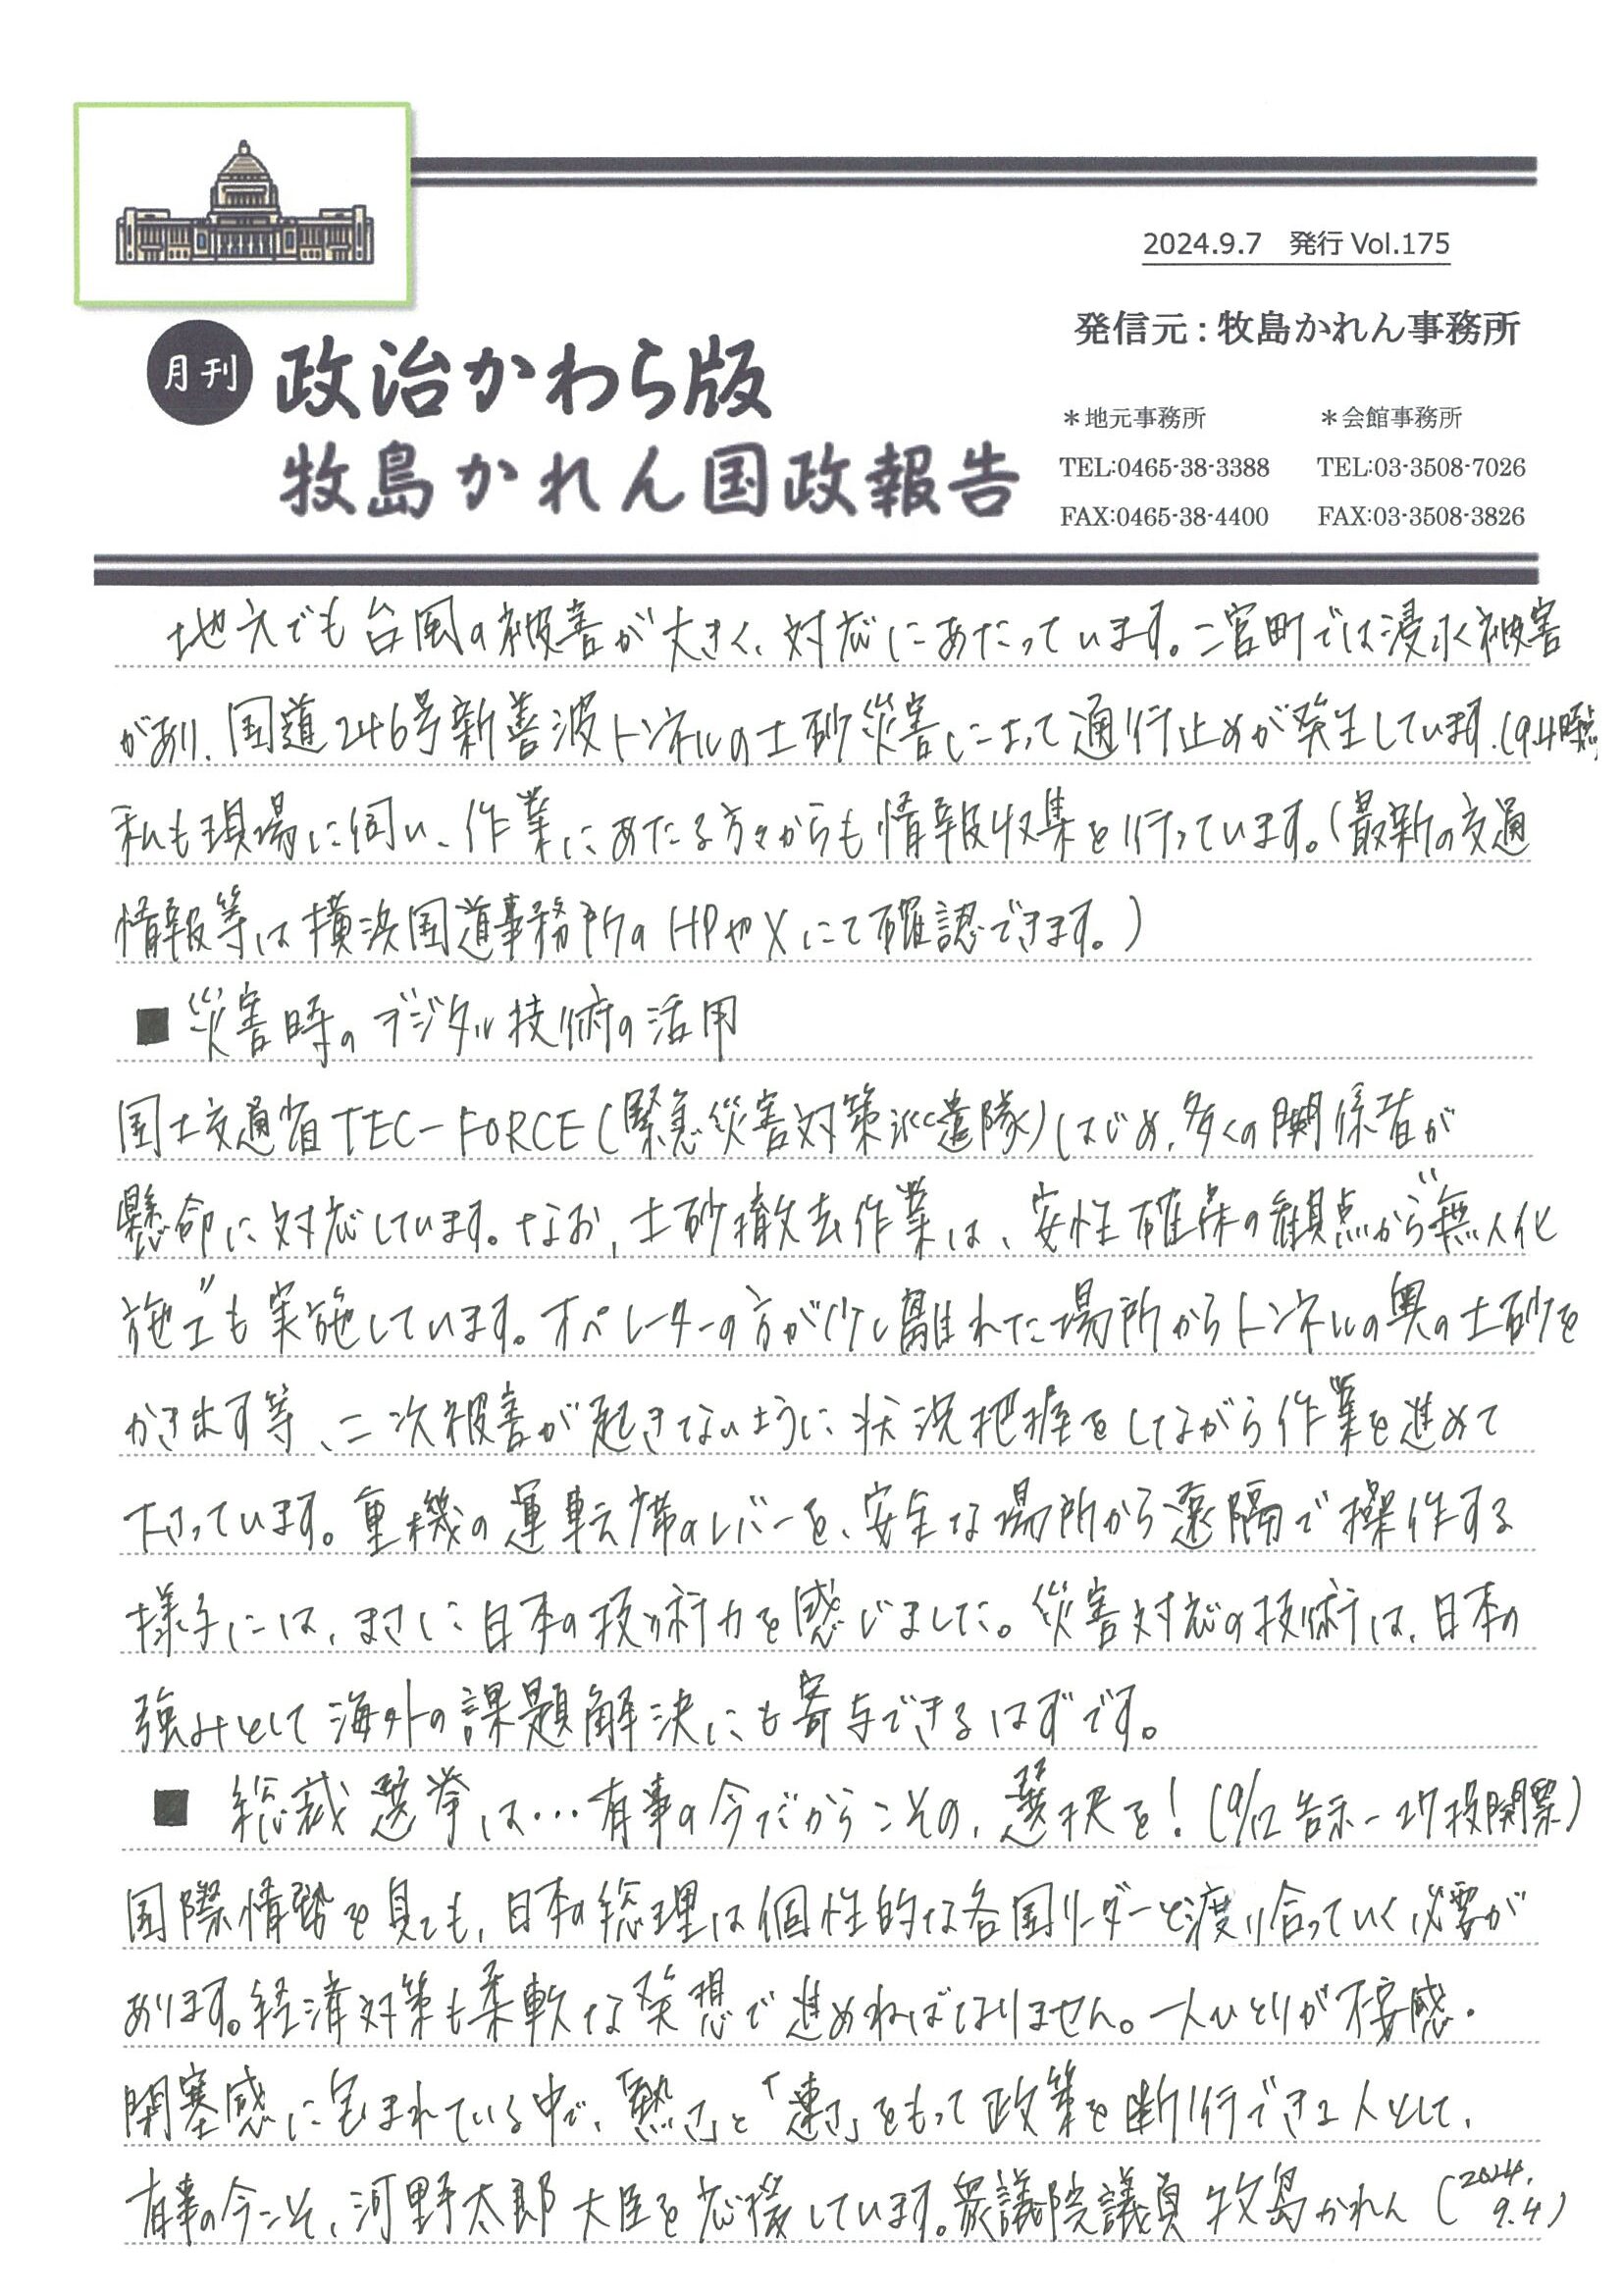 2024.9.7 発行 Vol.175
発信元：牧島かれん事務所
月刊 政治かわら版
牧島かれん国政報告
＊地元事務所 ＊会館事務所
TEL:0465-38-3388 TEL:03-3508-7026
FAX:0465-38-4400 FAX:03-3508-3826
地元でも台風の被害が大きく、対応にあたっています。二宮町では浸水被害
があり、国道246号新善波トンネルの土砂災害によって通行止めが発生しています。(9.4時点)
私も現場に伺い、作業にあたる方々からも情報収集を行っています。(最新の交通
情報等は横浜国道事務所のHPやXにて確認できます。)
■ 災害時のデジタル技術の活用
国土交通省TEC-FORCE(緊急災害対策派遣隊)はじめ、多くの関係者が
懸命に対応しています。なお、土砂撤去作業は、安性確保の観点から"無人化
施工"も実施しています。オペレーターの方が少し離れた場所からトンネルの奥の土砂を
かき出す等、二次被害が起きないように状況把握をしながら作業を進めて
下さっています。重機の運転席のレバーを、安全な場所から遠隔で操作する
様子には、まさに日本の技術力を感じました。災害対応の技術は、日本の
強みとして海外の課題解決にも寄与できるはずです。
■ 総裁選挙は…有事の今だからこその、選択を！(9/12告示-27投開票)
国際情勢を見ても、日本の総理は個性的な各国リーダーと渡り合っていく必要が
あります。経済対策も柔軟な発想で進めねばなりません。一人ひとりが不安感・
閉塞感に包まれている中で、「熱さ」と「速さ」をもって政策を断行できる人として、
有事の今こそ、河野太郎大臣を応援しています。衆議院議員 牧島かれん (2024.
9.4)